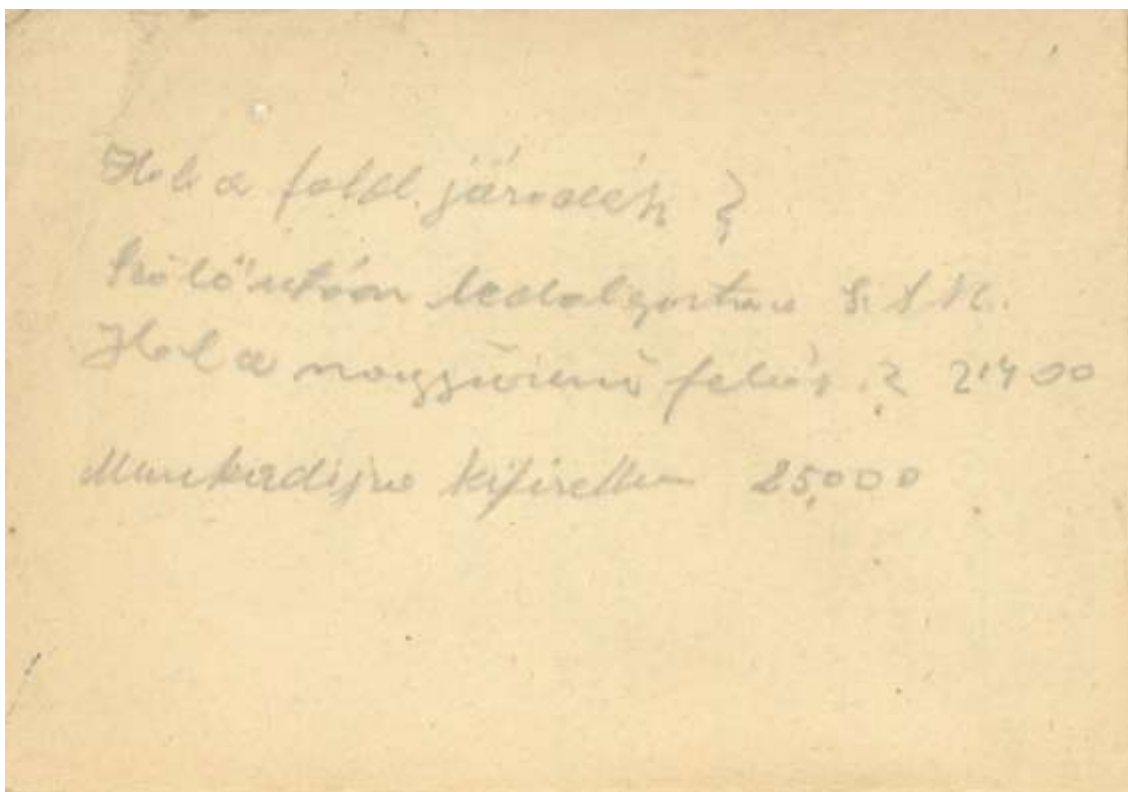 Hol a föld. járadék ?
Szőlő után ledolgoztam
Hol a nagyszüleinő ? 21400
Munkadíjra kifizettem 25000